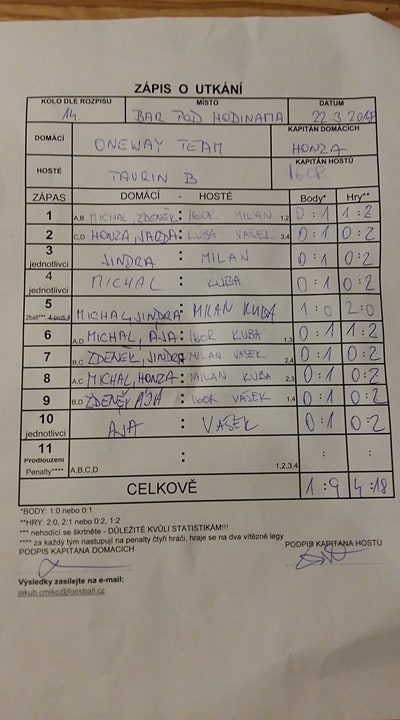 ZÁPIS O UTKÁNÍ
KOLO DLE ROZPISU MÍSTO DATUM
14 BAR POD HODINAMA 22 3 2017
DOMÁCÍ ONEWAY TEAM KAPITÁN DOMÁCÍCH HONZA
HOSTÉ TAURIN B KAPITÁN HOSTŮ IGOR
ZÁPAS DOMÁCÍ - HOSTÉ Body* Hry**
1 A,B MICHAL, ZDENĚK : IGOR MILAN 1,2 0:1 1:2
2 C,D HONZA, JARDA : KUBA VAŠEK 3,4 0:1 0:2
3 jednotlivci JINDRA : MILAN 0:1 0:2
4 jednotlivci MICHAL : KUBA 0:1 0:2
5 MICHAL, JINDRA : MILAN KUBA 1:0 2:0
6 A,D MICHAL, AJA : IGOR KUBA 1,3 0:1 1:2
7 B,C ZDENĚK, JINDRA : MILAN VAŠEK 2,4 0:1 0:2
8 A,C MICHAL, HONZA : MILAN KUBA 2,3 0:1 0:2
9 B,D ZDENĚK AJA : IGOR VAŠEK 1,4 0:1 0:2
10 jednotlivci AJA : VAŠEK 0:1 0:2
11 Prodloužení Penalty**** A,B,C,D : 1,2,3,4 : :
CELKOVĚ 1:9 4:18
*BODY: 1:0 nebo 0:1
**HRY: 2:0, 2:1 nebo 0:2, 1:2
*** nehodící se škrtněte - DŮLEŽITÉ KVŮLI STATISTIKÁM!!!
**** za každý tým nastupují na penalty čtyři hráči, hraje se na dva vítězné legy
PODPIS KAPITÁNA DOMÁCÍCH PODPIS KAPITÁNA HOSTŮ
Výsledky zasílejte na e-mail:
jakub.cmiko@foosball.cz